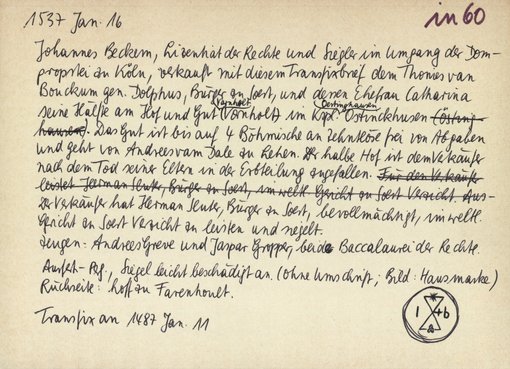 1537 Jan. 16
in 60
Johannes Beckem, Lizentiat der Rechte und Siegler im Umgang der Dom-
propstei zu Köln, verkauft mit diesem Transfixbrief dem Thonies van
Bouckum gen. Dolphus, Bürger zu Soest, und deren Ehefrau Catharina
Varnholt Oestinghausen
seine Hälfte am Hof und Gut (Vornholt) im Kspl. Ostinckhusen (Östing-
hausen). Das Gut ist bis auf 4 Böhmische an Zehntlöse frei von Abgaben
und geht von Andrees vam Dale zu Lehen. Der halbe Hof ist dem Verkäufer
nach dem Tod seiner Eltern in der Erbteilung zugefallen. Für den Verkäufer
leistet Herman Sluter, Bürger zu Soest, im weltl. Gericht zu Soest Verzicht. Aus-
Der Verkäufer hat Herman Sluter, Bürger zu Soest, bevollmächtigt, im weltl.
Gericht zu Soest Verzicht zu leisten und siegelt.
Zeugen: Andrees Greve und Jaspar Gropper, beide Baccalaurei der Rechte.
Ausfert.-Pgt., Siegel leicht beschädigt an. (ohne Umschrift; Bild: Hausmarke)
Rückseite: hoff zu Farenhoult.
Transfix an 1487 Jan. 11